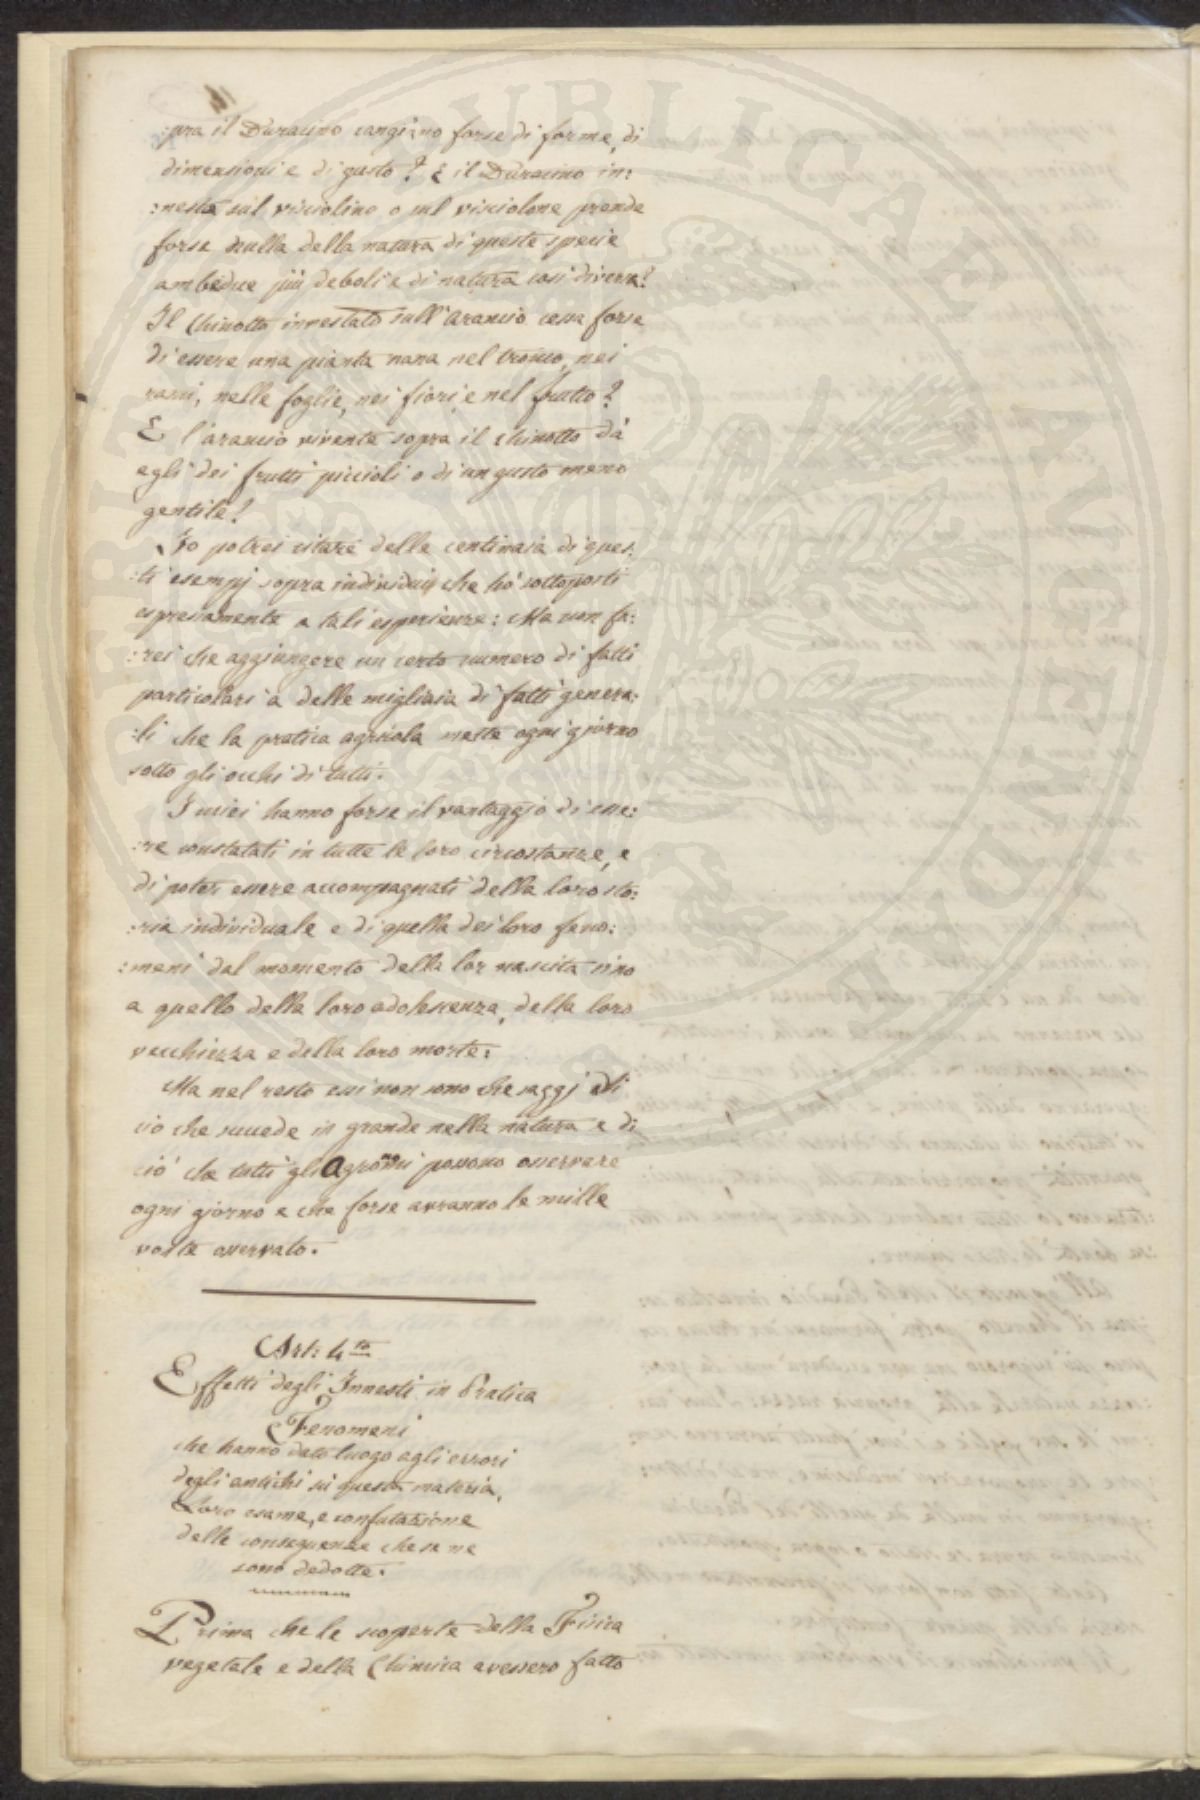 :pra il Duracino cangiano forse di forme, di
dimensioni e di gusto? E il Duracino in:
:nestà sul visciolino o sul visciolone prende
forse nulla della natura di queste specie
ambedue più deboli e di natura così diversa?
Il Chinotto innestato sull'arancio cessa forse
di essere una pianta nana nel tronco, nei
rami, nelle foglie, nei fiori e nel frutto?
E l'arancio vivente sopra il chinotto dà
egli dei frutti piccioli o di un gusto meno
gentile?
Io potrei citare delle centinaia di ques:
:ti esempj sopra individui che hò sottoposti
espressamente a tali esperienze: Ma non fa:
:rei che aggiungere un certo numero di fatti
particolari a delle migliaia di fatti genera:
:li che la pratica agricola mette ogni giorno
sotto gli occhi di tutti.
I miei hanno forse il vantaggio di esse:
:re constatati in tutte le loro circostanze, e
di poter essere accompagnati della loro sto:
:ria individuale e di quella dei loro feno:
:meni dal momento della lor nascita sino
a quello della loro adolescenza, della loro
vecchiezza e della loro morte:
Ma nel resto essi non sono che saggj di
ciò che succede in grande nella natura e di
ciò che tutti gli Agronomi possono osservare
ogni giorno e che forse avranno le mille
volte osservato.
Art: 4.to
Effetti degli Innesti in Pratica
Fenomeni
che hanno dato luogo agli errori
degli antichi su questa materia,
Loro esame, e confutazione
delle conseguenze che se ne
sono dedotte.
Prima che le scoperte della Fisica
vegetale e della Chimica avessero fatto
BIBLIOTHECA